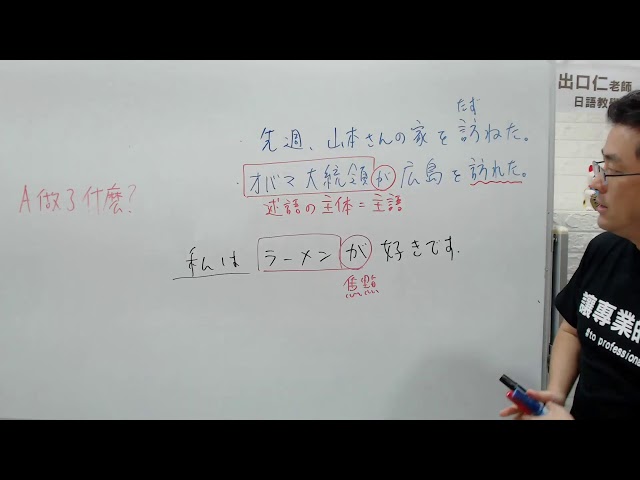 出口仁老師
日語教學
たず
先週、山本さんの家を訪ねた。
オバマ大統領が広島を訪れた。
述語の主体=主語
A做了什麼?
私はラーメンが好きです.
焦點
讓專業的
to professiona